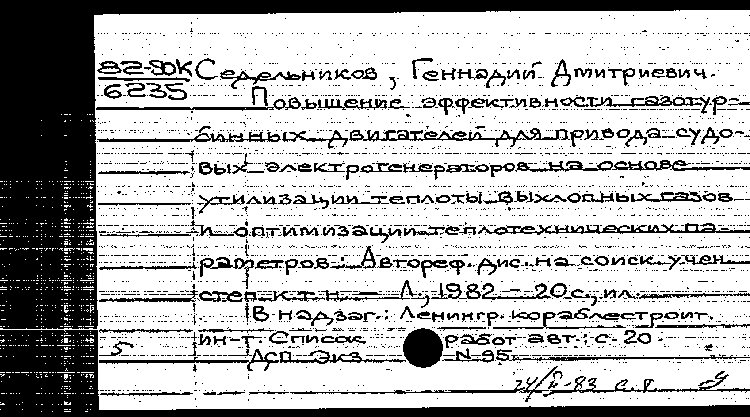 82-80К Седельников, Геннадий Дмитриевич.
6235
Повышение эффективности газотур-
бинных двигателей для привода судо-
вых электрогенераторов на основе
утилизации теплоты выхлопных газов
и оптимизации теплотехнических па-
раметров: Автореф. дис. на соиск. учен.
степ. к.т.н. — Л., 1982 - 20 с., ил.
В надзаг.: Ленингр. кораблестроит.
ин-т. Список работ авт.: с. 20.
5 Дсп Экз. N 95